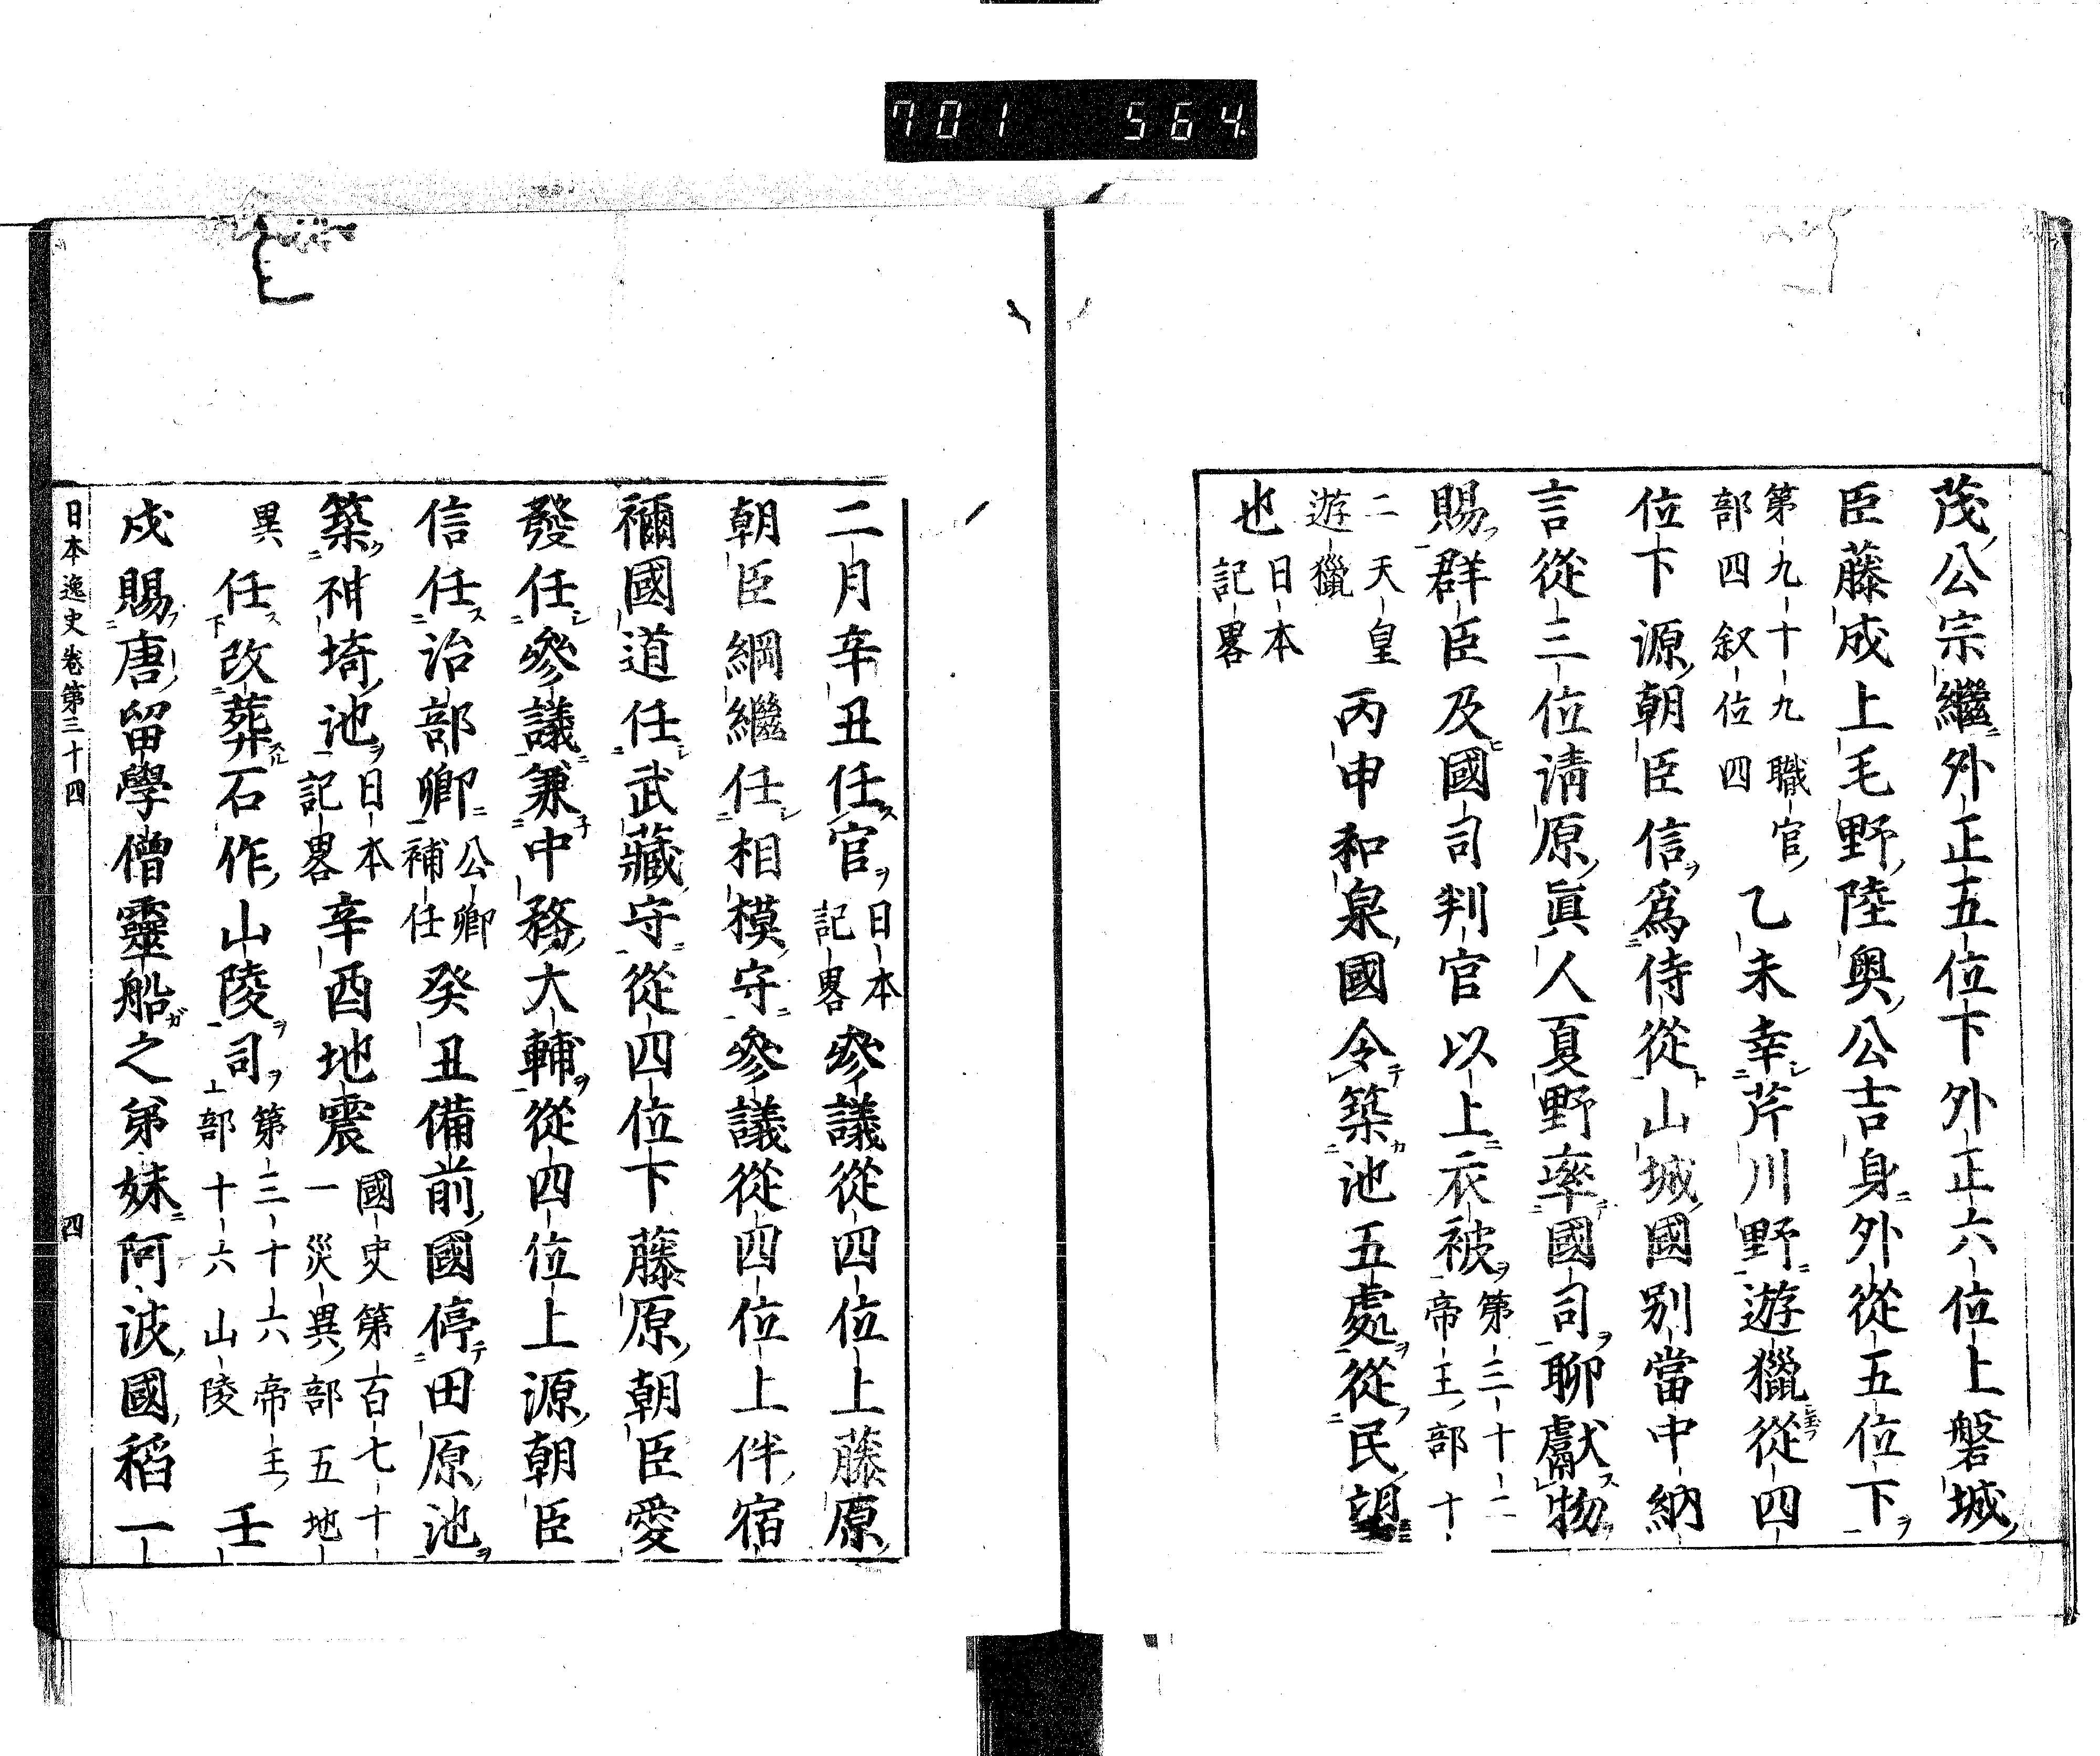 701 564
茂公宗繼外正五位下外正六位上磐城
臣藤成上毛野陸奧公吉身外從五位下
第九十九職官
部四叙位四
乙未幸芹川野遊獵從四
位下源朝臣信爲侍從山城國别當中納
言從三位清原眞人夏野率國司聊獻物
賜群臣及國司判官以上衣被
第三十二
帝王部十
二天皇
遊獵
丙申和泉國令築池五處從民望
也
日本
記畧
二月辛丑任官
日本
記畧
參議從四位上藤原
朝臣綱繼任相模守參議從四位上伴宿
禰國道任武藏守從四位下藤原朝臣愛
發任參議兼中務大輔從四位上源朝臣
信任治部卿
公卿
補任
癸丑備前國停田原池
築神埼池
日本
記畧
辛酉地震
國史第百七十
一災異部五地
異
任改葬石作山陵司
第三十六帝王
部十六山陵
壬
戌賜唐留學僧靈船之弟妹阿波國稻一
日本逸史卷第三十四
四